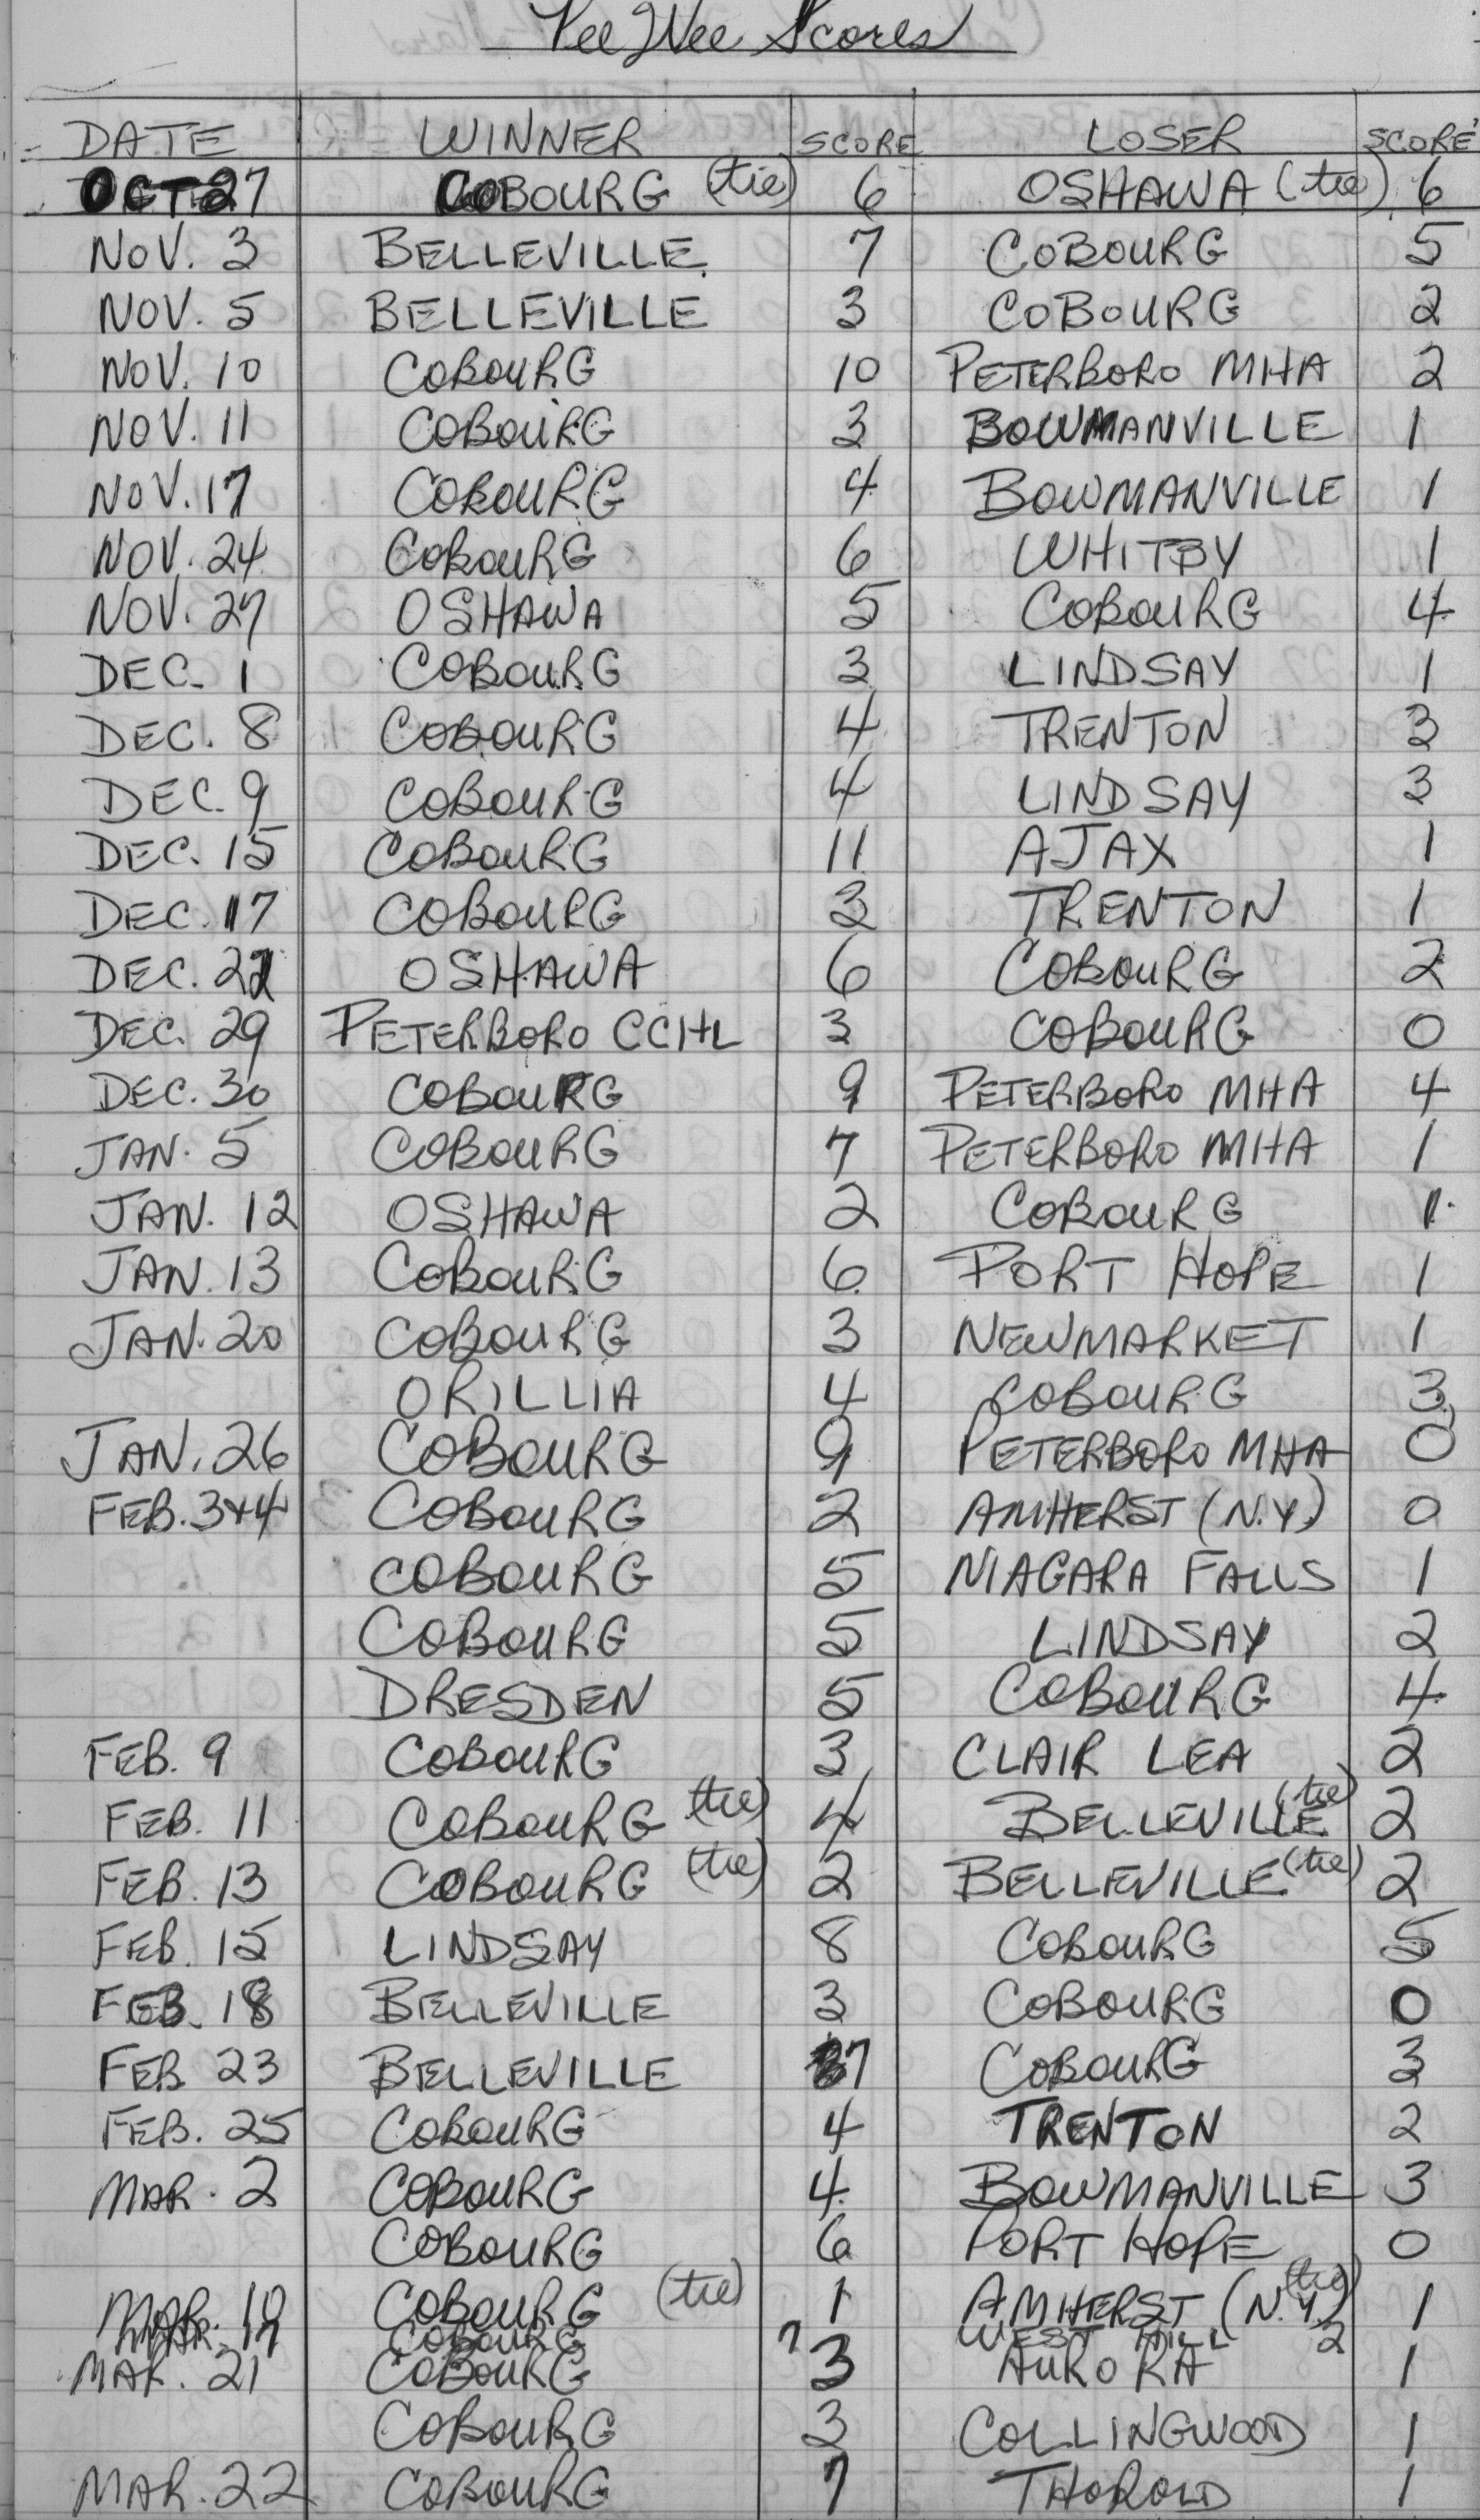 Pee Wee Scores
DATE WINNER SCORE LOSER SCORE
OCT 27 COBOURG (tie) 6 OSHAWA (tie) 6
NOV. 3 BELLEVILLE 7 COBOURG 5
NOV. 5 BELLEVILLE 3 COBOURG 2
NOV. 10 COBOURG 10 PETERBORO MHA 2
NOV. 11 COBOURG 3 BOWMANVILLE 1
NOV. 17 COBOURG 4 BOWMANVILLE 1
NOV. 24 COBOURG 6 WHITBY 1
NOV. 27 OSHAWA 5 COBOURG 4
DEC. 1 COBOURG 3 LINDSAY 1
DEC. 8 COBOURG 4 TRENTON 3
DEC. 9 COBOURG 4 LINDSAY 3
DEC. 15 COBOURG 11 AJAX 1
DEC. 17 COBOURG 3 TRENTON 1
DEC. OSHAWA 6 COBOURG 2
DEC. 29 PETERBORO CCHL 3 COBOURG 0
DEC. 30 COBOURG 9 PETERBORO MHA 4
JAN. 5 COBOURG 7 PETERBORO MHA 1
JAN. 12 OSHAWA 2 COBOURG 1
JAN. 13 COBOURG 6 PORT HOPE 1
JAN. 20 COBOURG 3 NEWMARKET 1
ORILLIA 4 COBOURG 3
JAN. 26 COBOURG 9 PETERBORO MHA 0
FEB. 3+4 COBOURG 2 AMHERST (N.Y.) 0
COBOURG 5 NIAGARA FALLS 1
COBOURG 5 LINDSAY 2
DRESDEN 5 COBOURG 4
FEB. 9 COBOURG 3 CLAIR LEA 2
FEB. 11 COBOURG (tie) 4 BELLEVILLE (tie) 2
FEB. 13 COBOURG (tie) 2 BELLEVILLE (tie) 2
FEB. 15 LINDSAY 8 COBOURG 5
FEB. 18 BELLEVILLE 3 COBOURG 0
FEB. 23 BELLEVILLE 7 COBOURG 3
FEB. 25 COBOURG 4 TRENTON 2
MAR. 2 COBOURG 4 BOWMANVILLE 3
COBOURG 6 PORT HOPE 0
MAR. COBOURG (tie) 1 AMHERST (N.Y.) (tie) 1
MAR. 17 COBOURG 7 WEST HILL 2
MAR. 21 COBOURG 3 AURORA 1
COBOURG 3 COLLINGWOOD 1
MAR. 22 COBOURG 7 THOROLD 1